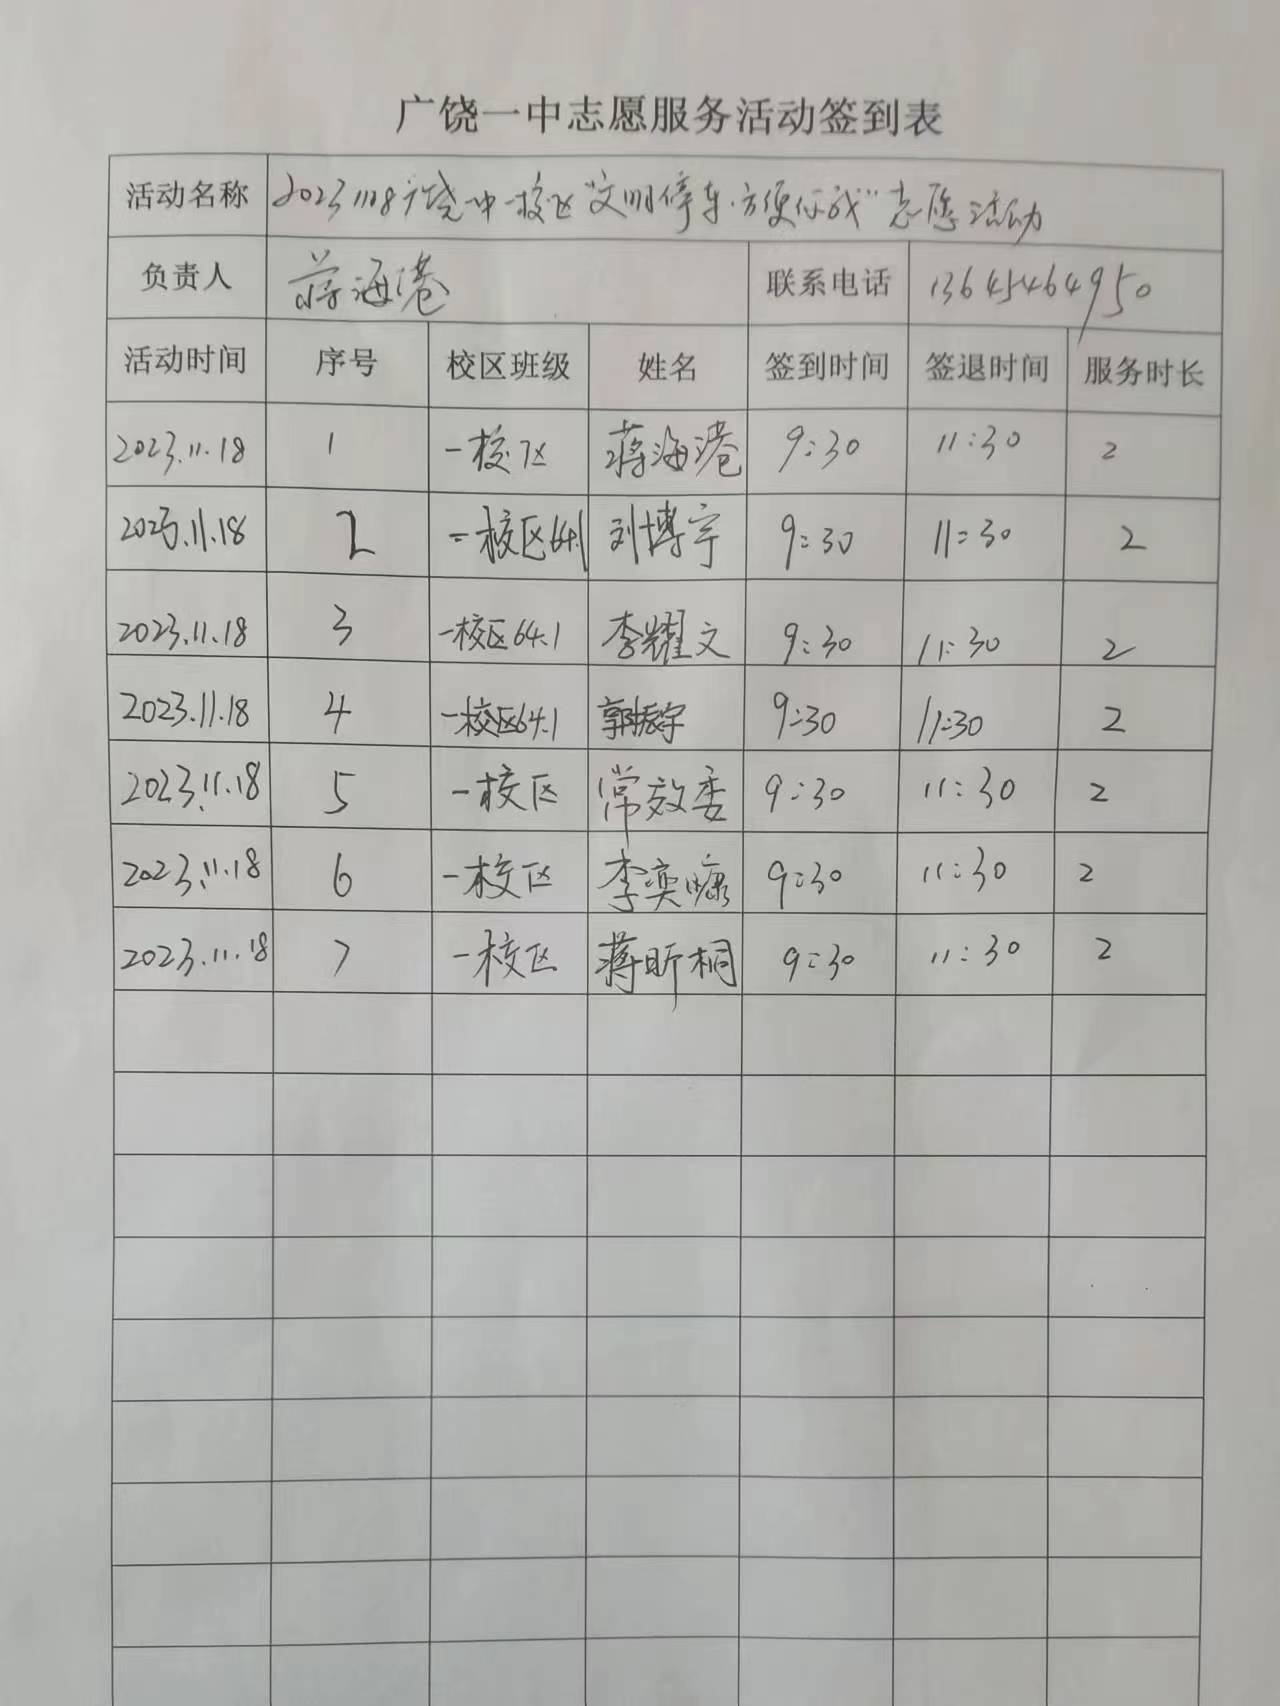 广饶一中志愿服务活动签到表
活动名称 20231118广饶一中一校区"文明停车·方便你我"志愿活动
负责人 蒋海港 联系电话 13645464950
活动时间 序号 校区班级 姓名 签到时间 签退时间 服务时长
2023.11.18 1 一校区 蒋海港 9:30 11:30 2
2023.11.18 2 一校区64.1 刘博宇 9:30 11:30 2
2023.11.18 3 一校区64.1 李耀文 9:30 11:30 2
2023.11.18 4 一校区64.1 郭振宇 9:30 11:30 2
2023.11.18 5 一校区 常效委 9:30 11:30 2
2023.11.18 6 一校区 李奕慷 9:30 11:30 2
2023.11.18 7 一校区 蒋昕桐 9:30 11:30 2